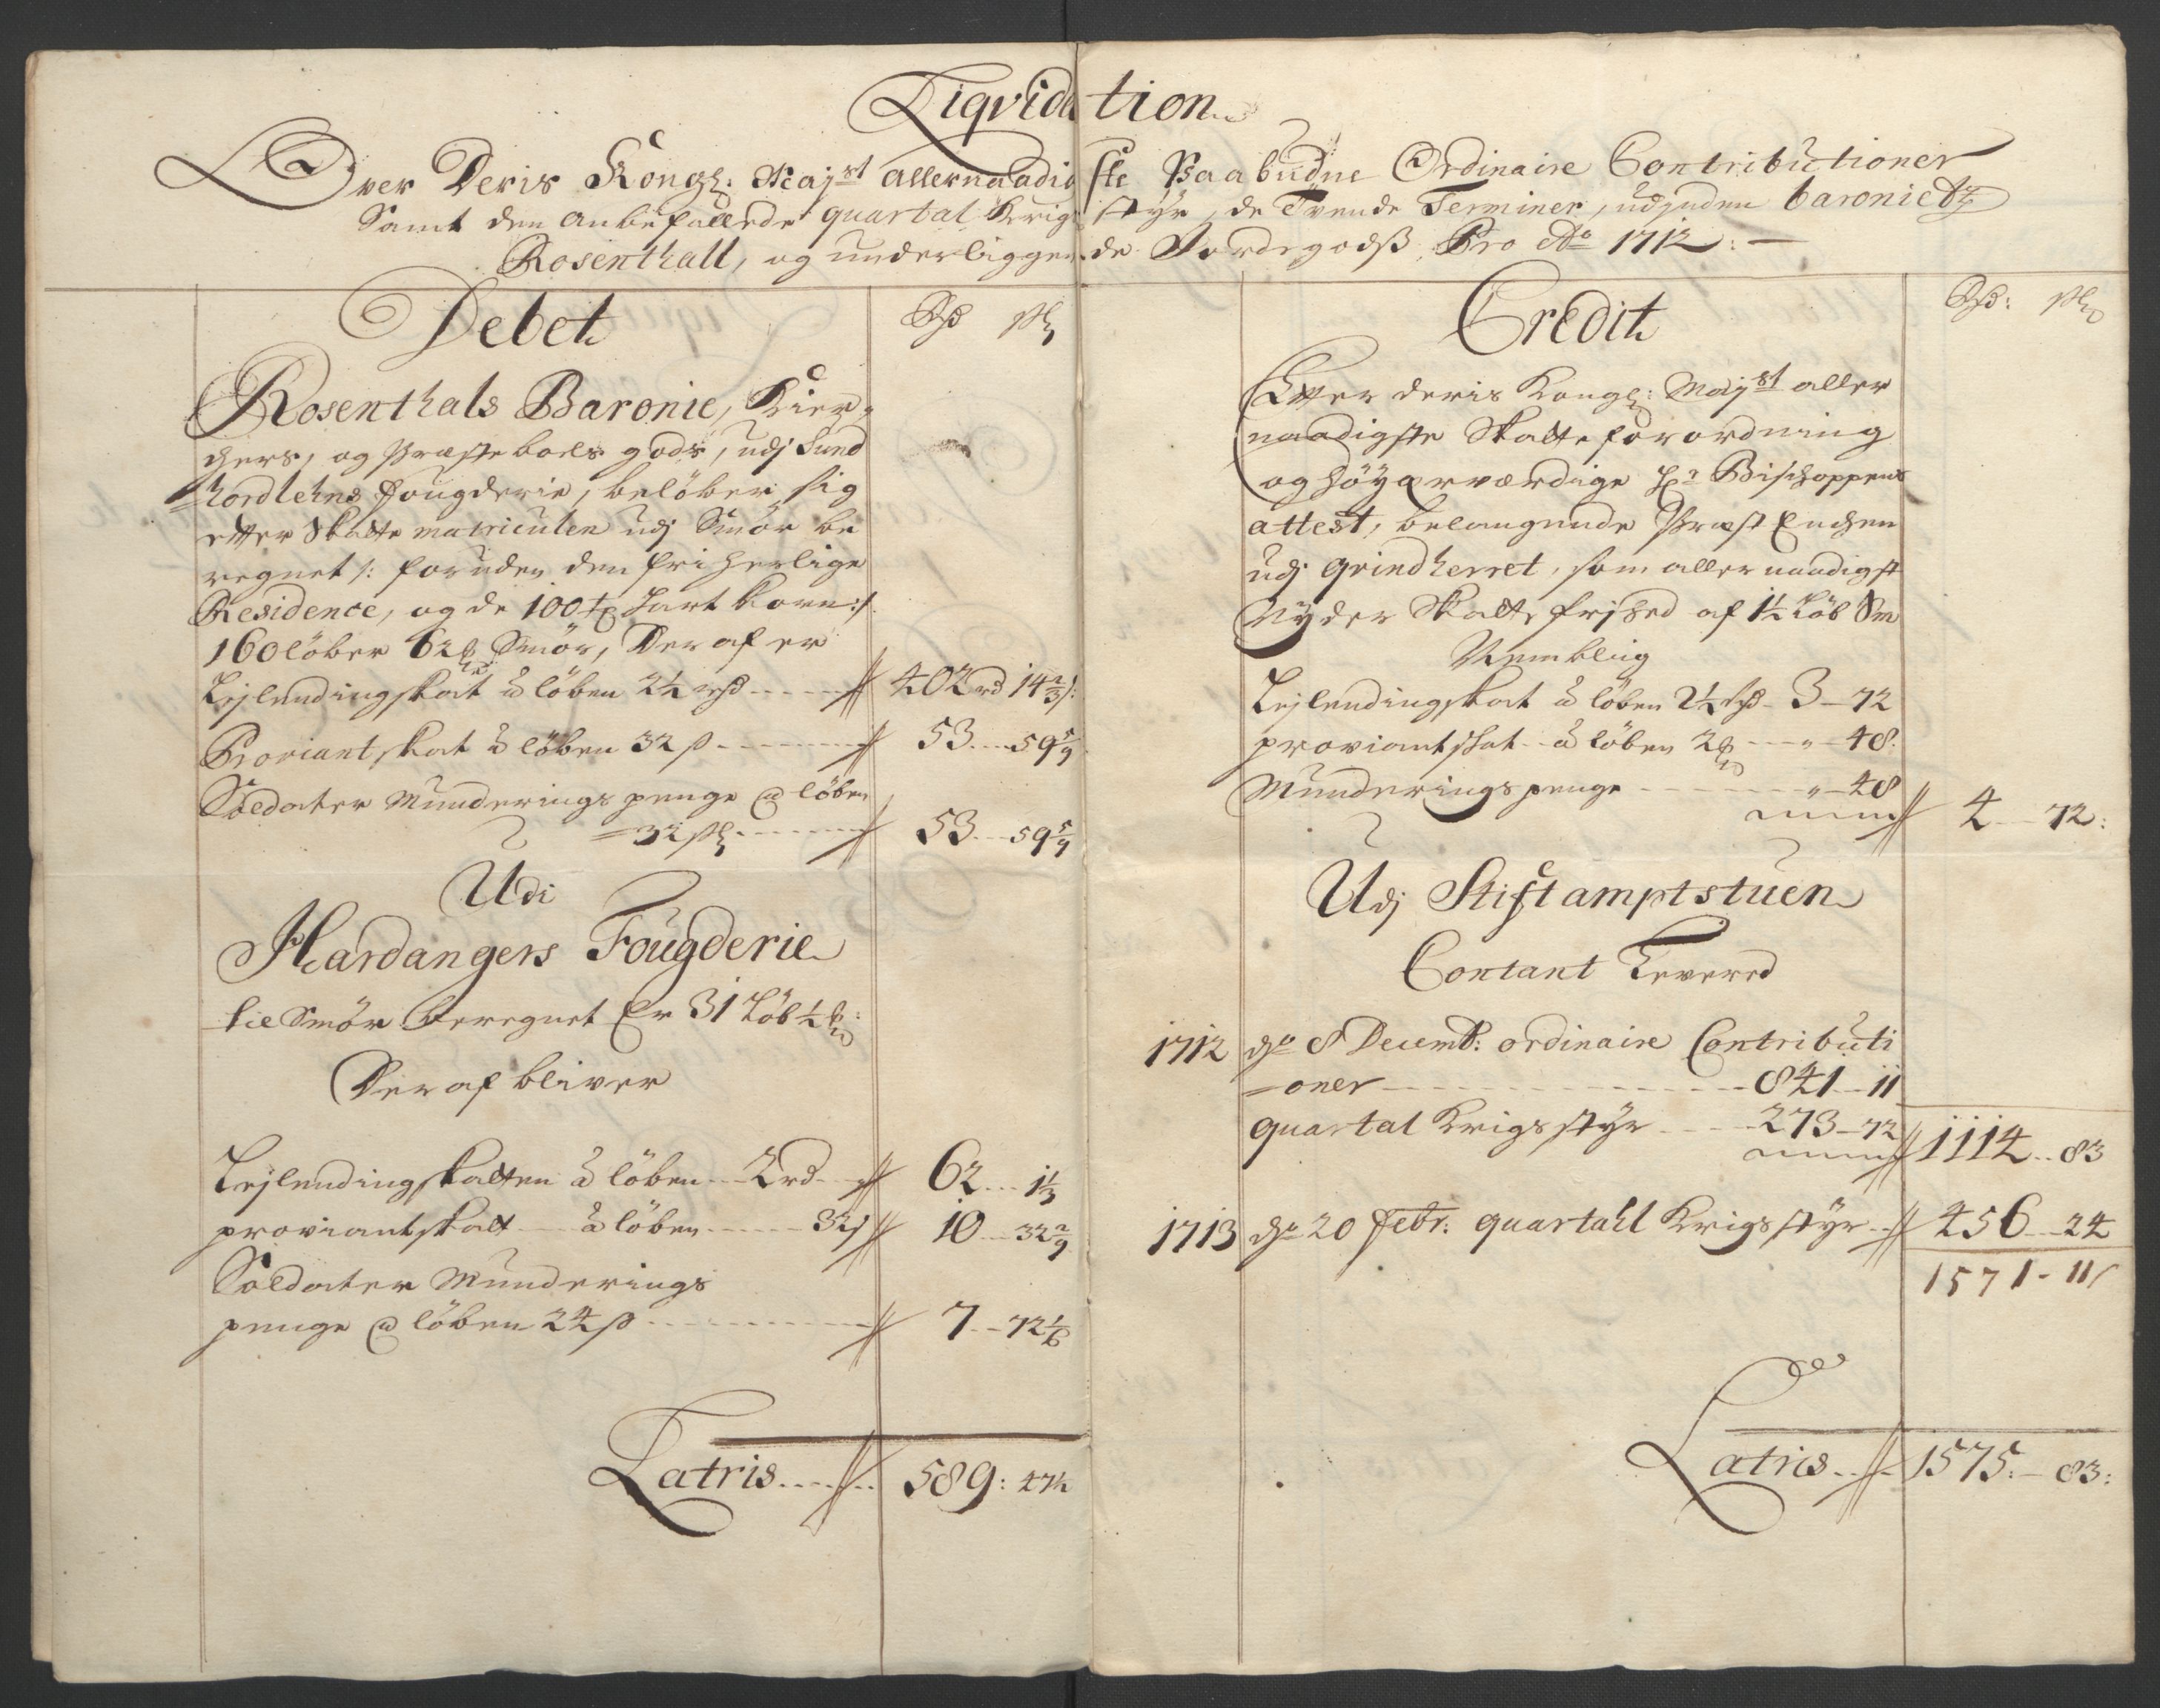 Liqvidation
Over Deris Kongl: Mayst allernaadigste Paabudne Ordinaire Contributioner
Samt den anbefallede quartal Krigs styr, de Tvende Terminer, udjnden baroniet
Rosenthall, og underliggende Jordegodß, Pro Ao 1712:
Debet
Rd ß
Rosenthals Baronie, Kier,
chers, og Præsteboels gods, udj Sund
hordlehns fougderie, beløber sig
effter Skatte matriculen udj Smør be
regnet /: foruden den friherlige
Residence, og de 100 t hart korn :/
160 løber 62 Smør, Deraf er
Lejlendingskat a løben 2½ rd 402 rd 14 2/3
Proviantskat a løben 32 ß 53 59 5/9
Soldater Munderings penge a løben
32 ß 53 59 5/9
Udi
Hardangers Fougderie
til Smør beregnet Er 31 Løb ½
Deraf bliver
Lejlendingskatten a løben 2 rd 62 1 1/3
proviantskatt a løben 32 ß 10 32 2/9
Soldater Munderings
penge a løben 24 ß 7 72 1/6
Latris 589: 47½
Credit
Rd: ß
Effter deris Kongl: Mayst aller
naadigste Skatte forordning
og høyærværdige Hr Bischoppens
attest, belangende Præst Enchen
udj Qvindherret, som aller naadigst
Nyder Skatte frihed af 1½ Løb Sm
Nemblig
Lejlendingskat a løben 2½ rd 3 72
proviantskat a løben 2 " 48
Munderingspenge " 48
4 72:
Udj Stiftamptstuen
Contant Levered
1712 dn 8 Decemb: ordinaire Contributi
oner 841 11
quartal Krigsstyr 273 72
1114 83
1713 dn 20 febr: quartahl Krigsstyr 456 24
1571 11
Latris 1575: 83: